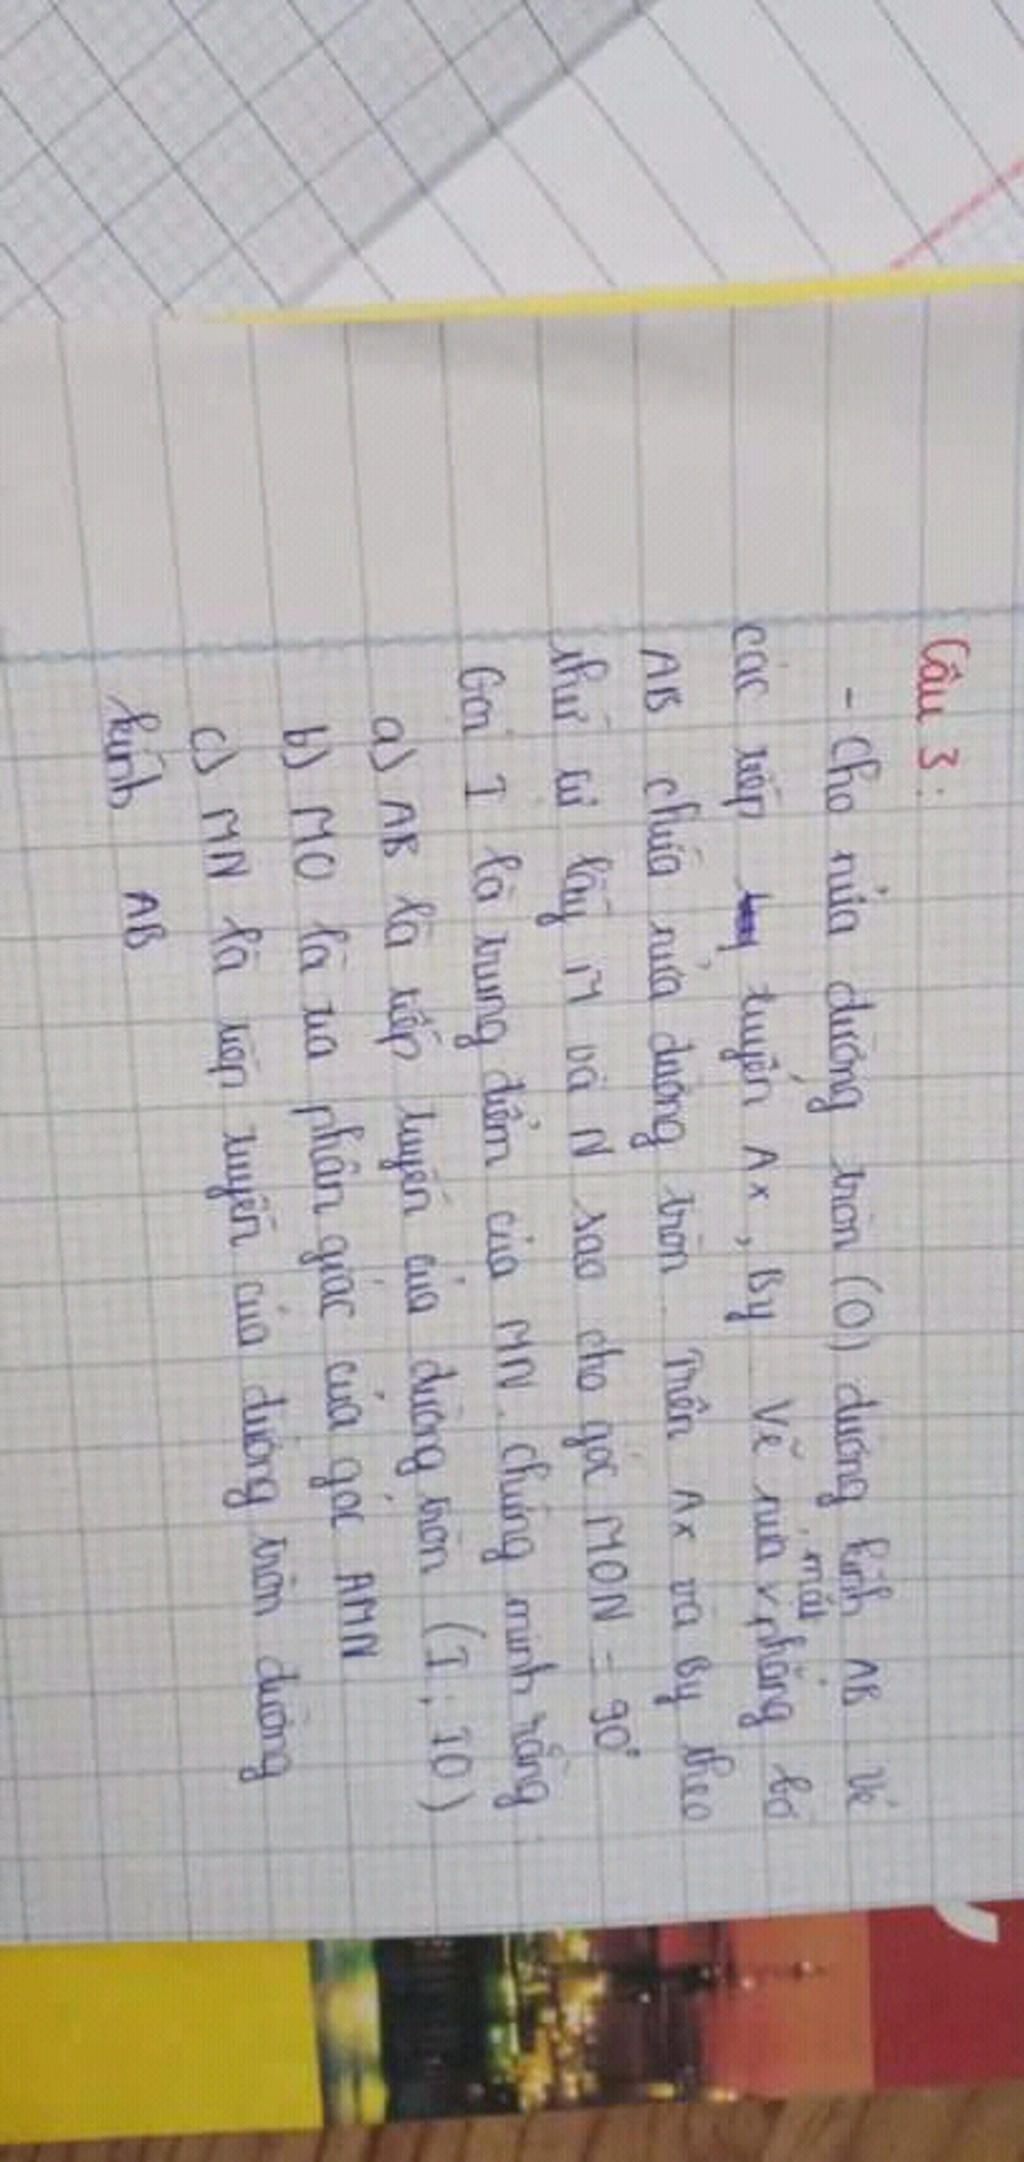 Câu 3:
- Cho nửa đường tròn (O) đường kính AB vẽ
các tiếp tuyến Ax, By. Vẽ nửa mặt phẳng bờ
AB chứa nửa đường tròn. Trên Ax và By theo
thứ tự lấy M và N sao cho góc MON = 90°
Gọi I là trung điểm của MN. chứng minh rằng:
a) AB là tiếp tuyến của đường tròn (I; IO)
b) MO là tia phân giác của góc AMN
c) MN là tiếp tuyến của đường tròn đường
kính AB